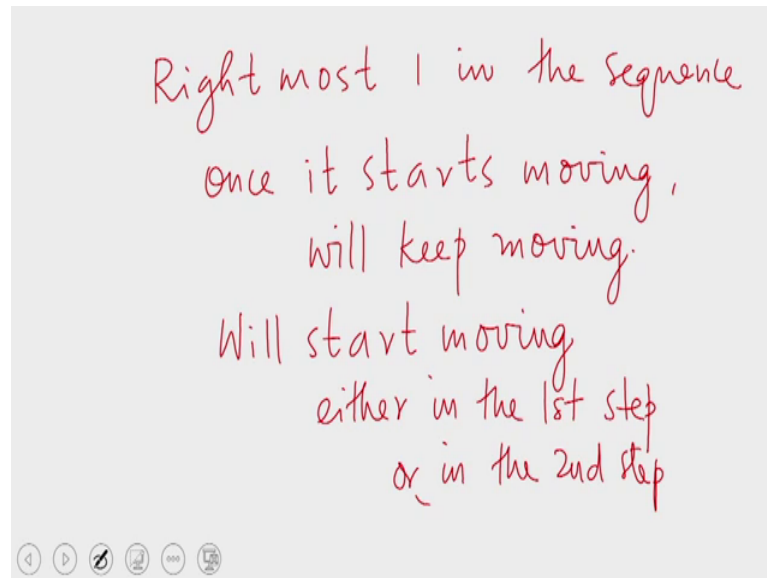 Right most 1 in the sequence
once it starts moving,
will keep moving.
Will start moving
either in the 1st step
or in the 2nd step